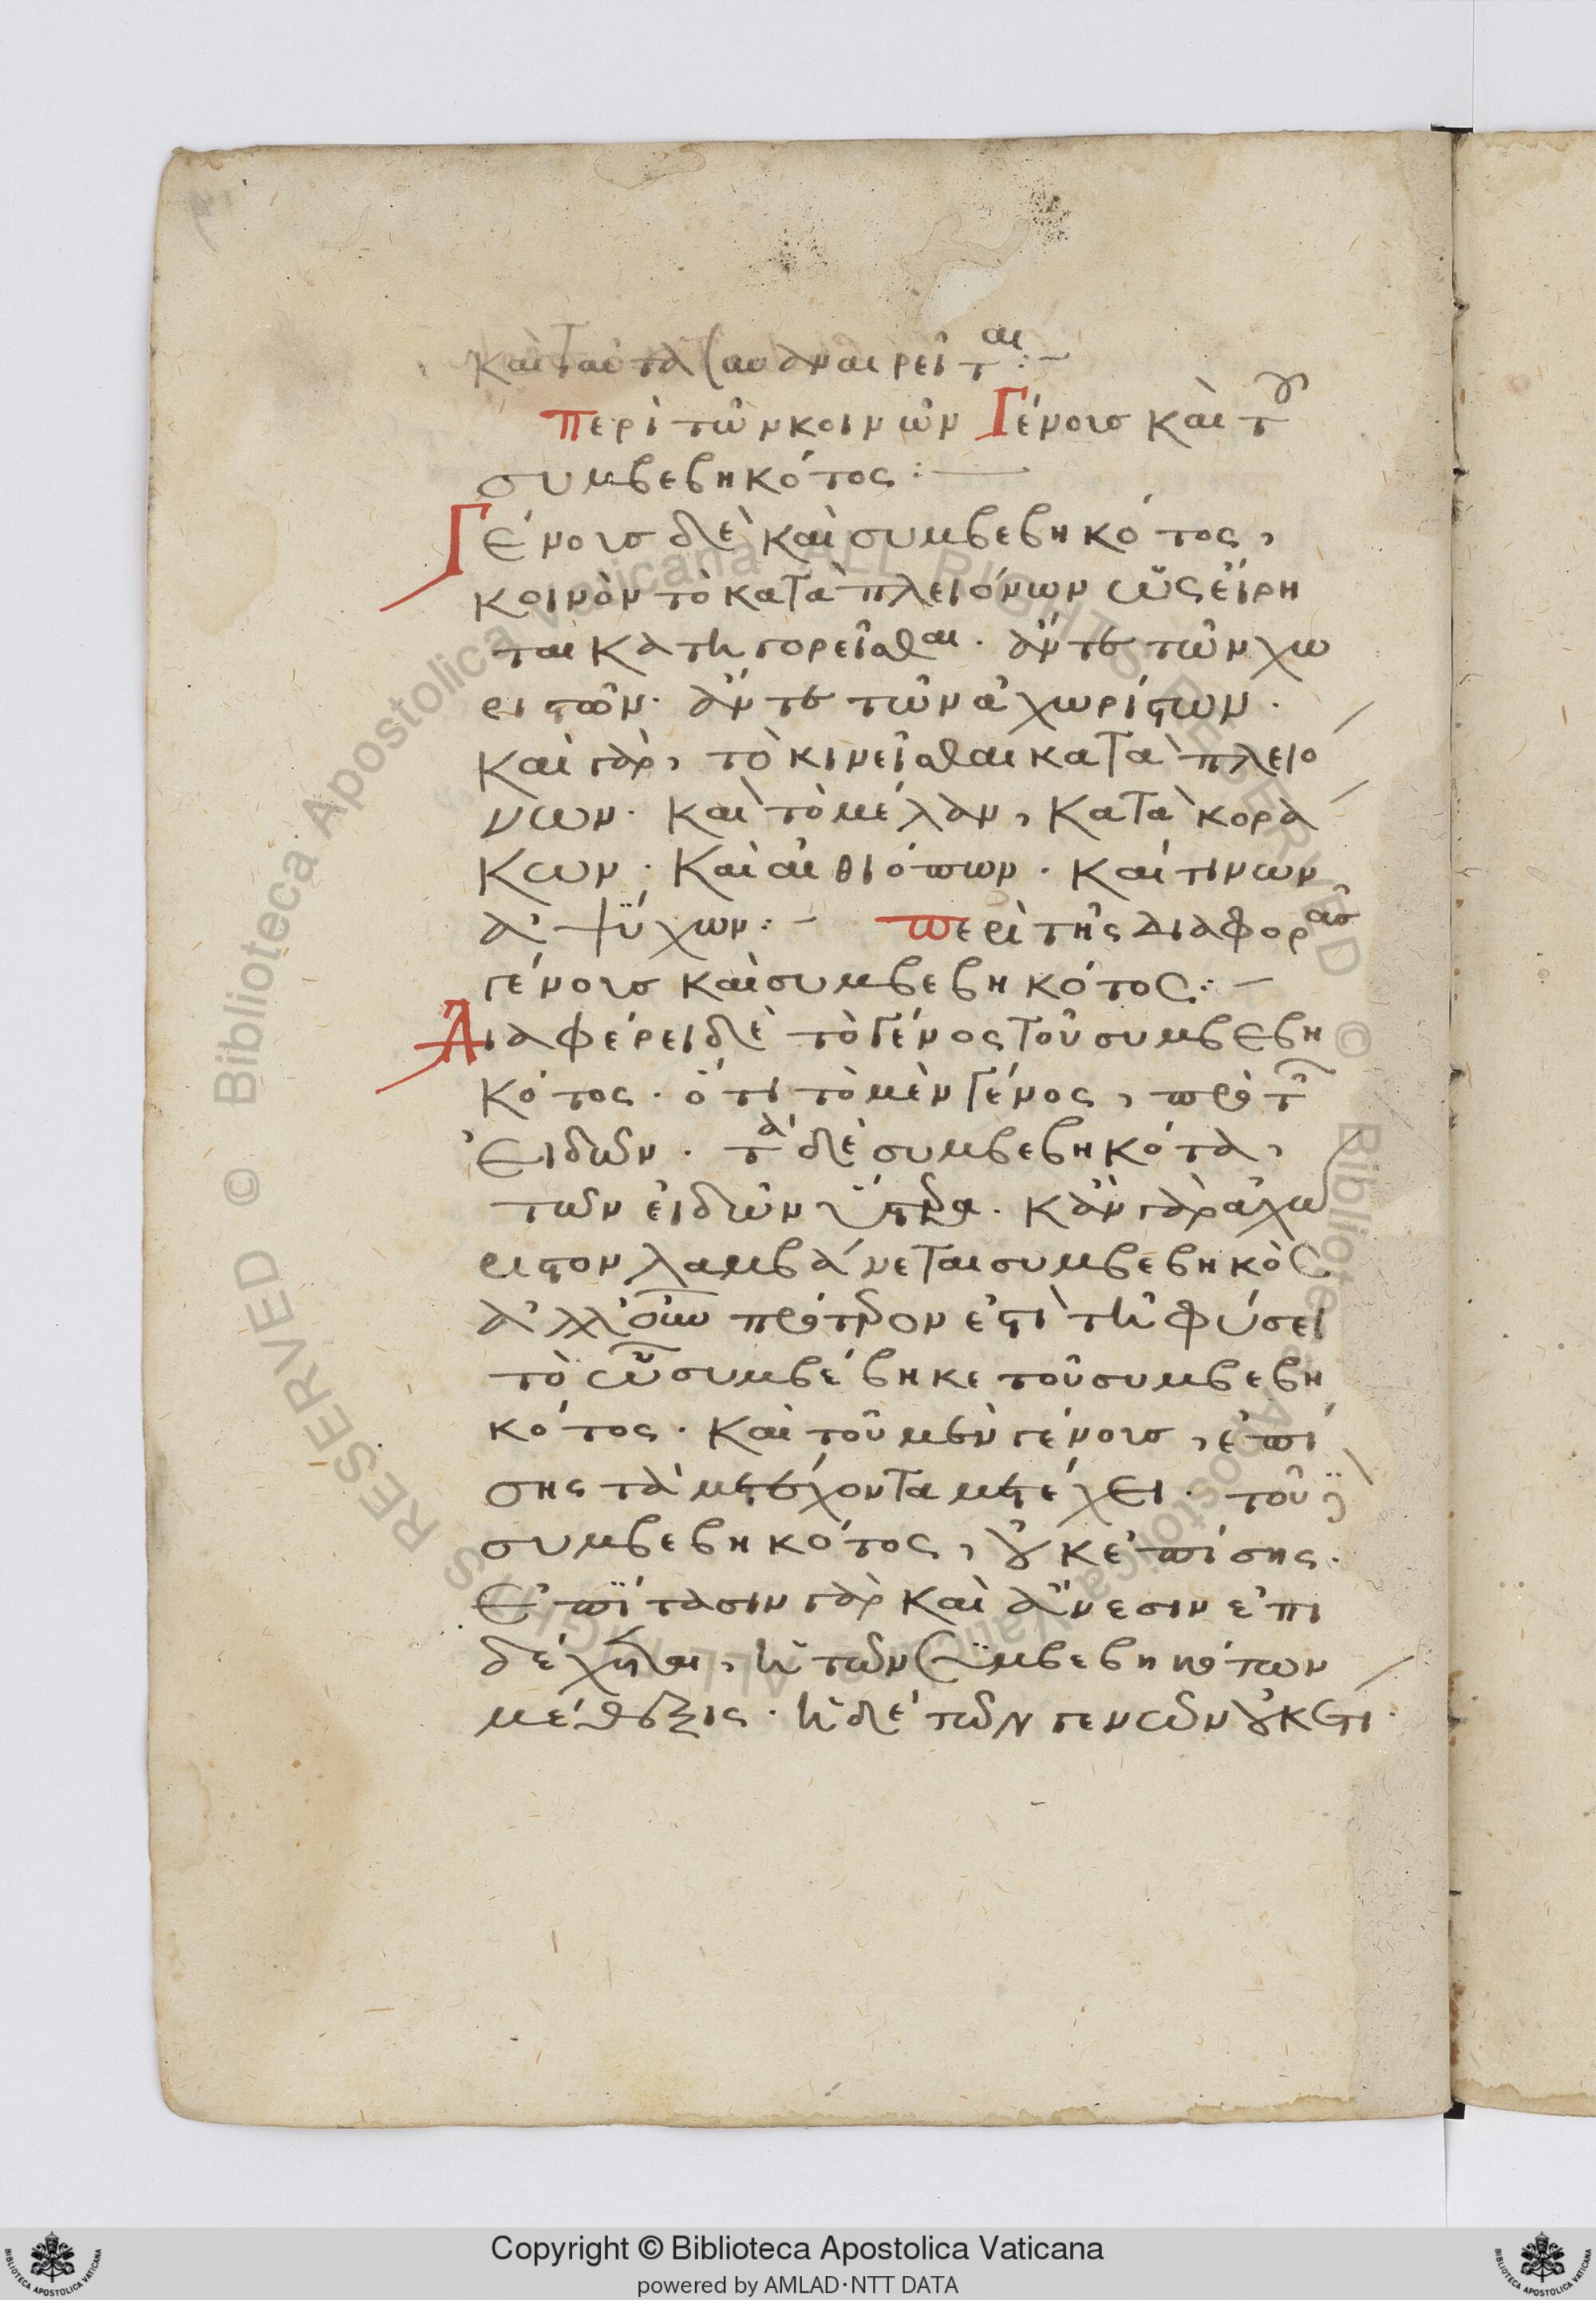 καὶ ταῦτα συναναιρεῖται :-
περὶ τῶν κοινῶν Γένους καὶ τοῦ
συμβεβηκότος :—
Γένους δὲ καὶ συμβεβηκότος,
κοινὸν τὸ κατὰ πλειόνων ὡς εἴρη
ται κατηγορεῖσθαι · ἄν τε τῶν χω
ριστῶν · ἄν τε τῶν ἀχωρίστων ·
καὶ γὰρ, τὸ κινεῖσθαι κατὰ πλειό
νων · καὶ τὸ μέλαν, κατὰ κορά
κων · καὶ αἰθιόπων · καί τινων
ἀψύχων :- περὶ τῆς διαφορᾶς
γένους καὶ συμβεβηκότος :-
Διαφέρει δὲ τὸ Γένος τοῦ συμβεβη
κότος · ὅτι τὸ μὲν Γένος, πρὸ τῶν
εἰδῶν · τὰ δὲ συμβεβηκότα,
τῶν εἰδῶν ὕστερα · κἂν γὰρ ἀχώ
ριστον λαμβάνεται συμβεβηκὸς
ἀλλ' οὖν πρότερον ἐστὶ τῇ φύσει
τὸ ὧ συμβέβηκε τοῦ συμβεβη
κότος · καὶ τοῦ μὲν γένους, ἐπί
σης τὰ μετέχοντα μετέχει · τοῦ δὲ
συμβεβηκότος, οὐκ ἐπίσης ·
Ἐπίτασιν γὰρ καὶ ἄνεσιν ἐπι
δέχεται, ἡ τῶν συμβεβηκότων
μέθεξις · ἡ δὲ τῶν γενῶν οὐκέτι ·
Copyright © Biblioteca Apostolica Vaticana
powered by AMLAD·NTT DATA